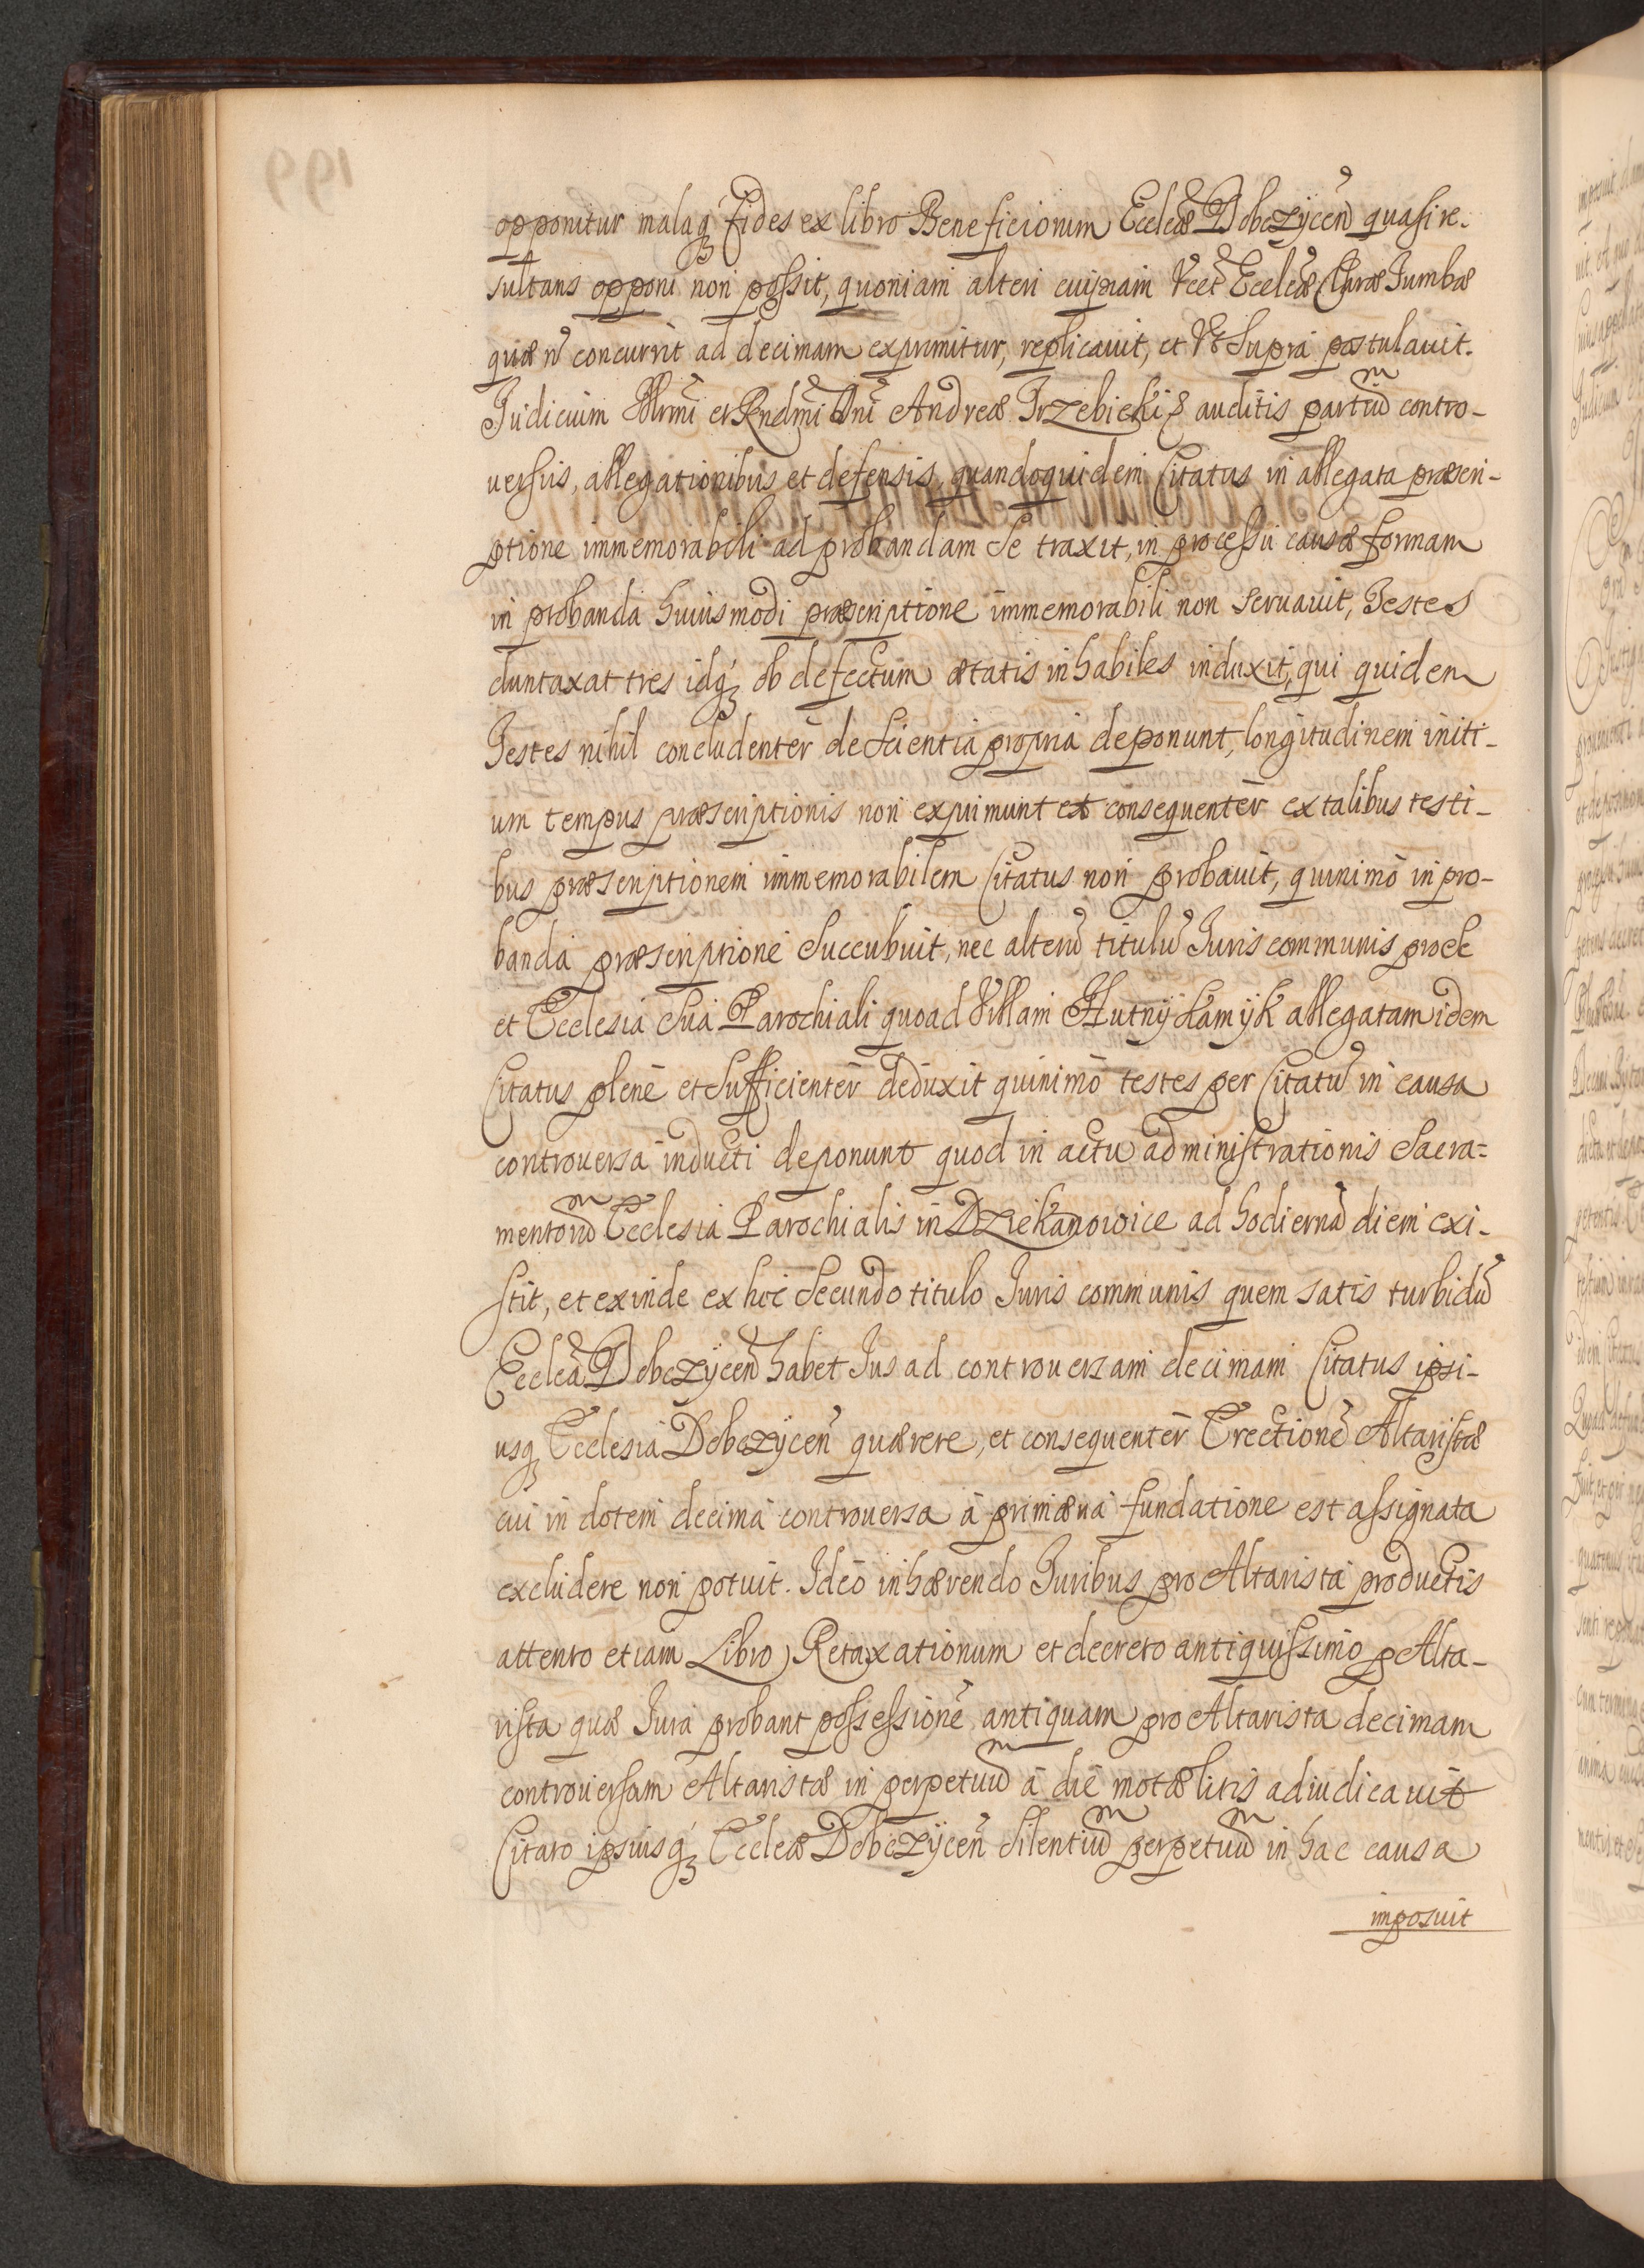 opponitur malaq́ꝫ fides ex libro Beneficiorum Eccleæ Dobczÿceñ quasi re-
sultans opponi non possit, quoniam alteri cuipiam Vt et Eccleæ Claræ Tumbæ
quæ n̄ concurrit ad decimam exprimitur, replicauit, et Vt Supra postulauit.
Judicium Illrmi et Rndmi Dni Andreæ Trzebicki auditis partiū contro-
uersiis, allegationibus et defensis, quandoquidem Citatus in allegata præscri-
ptione immemorabili ad probandam Se traxit, in processu causæ formam
in probanda huiusmodi præscriptione immemorabili non Seruauit, Testes
duntaxat tres idq́ꝫ ob defectum ætatis inhabiles induxit, qui quidem
Testes nihil concludenter de Scientia propria deponunt, longitudinem initi-
um tempus præscriptionis non exprimunt et consequenter ex talibus testi-
bus præscriptionem immemorabilem Citatus non probauit, quinimò in pro-
banda præscriptione Succubuit, nec alterū titulū Juris communis pro Se
et Ecclesia Sua Parochiali quoad Villam Hutnÿ Kamÿk allegatam idem
Citatus plenè et Sufficienter deduxit quinimò testes per Citatū in causa
controuersa inducti deponunt quod in actu administrationis Sacra-
mentorū Ecclesia Parochialis in Dziekanowice ad hodiernā diem exi-
stit, et exinde ex hoc Secundo titulo Juris communis quem satis turbidū
Ecclea Dobczÿceñ habet Jus ad controuersam decimam Citatus ipsi-
usqꝫ Ecclesia Dobczÿceñ quærere, et consequenter Erectionē Altaristæ
cui in dotem decima controuersa à primæua fundatione est assignata
excludere non potuit. Ideò inhærendo Juribus pro Altarista productis
attento etiam Libro Retaxationum et decreto antiquissimo p Alta-
rista quæ Jura probant possessionē antiquam pro Altarista decimam
controuersam Altaristæ in perpetuū à die motæ litis adiudicauit
Citato ipsiusq́ꝫ Eccleæ Dobczÿceñ Silentiū perpetuū in hac causa
imposuit